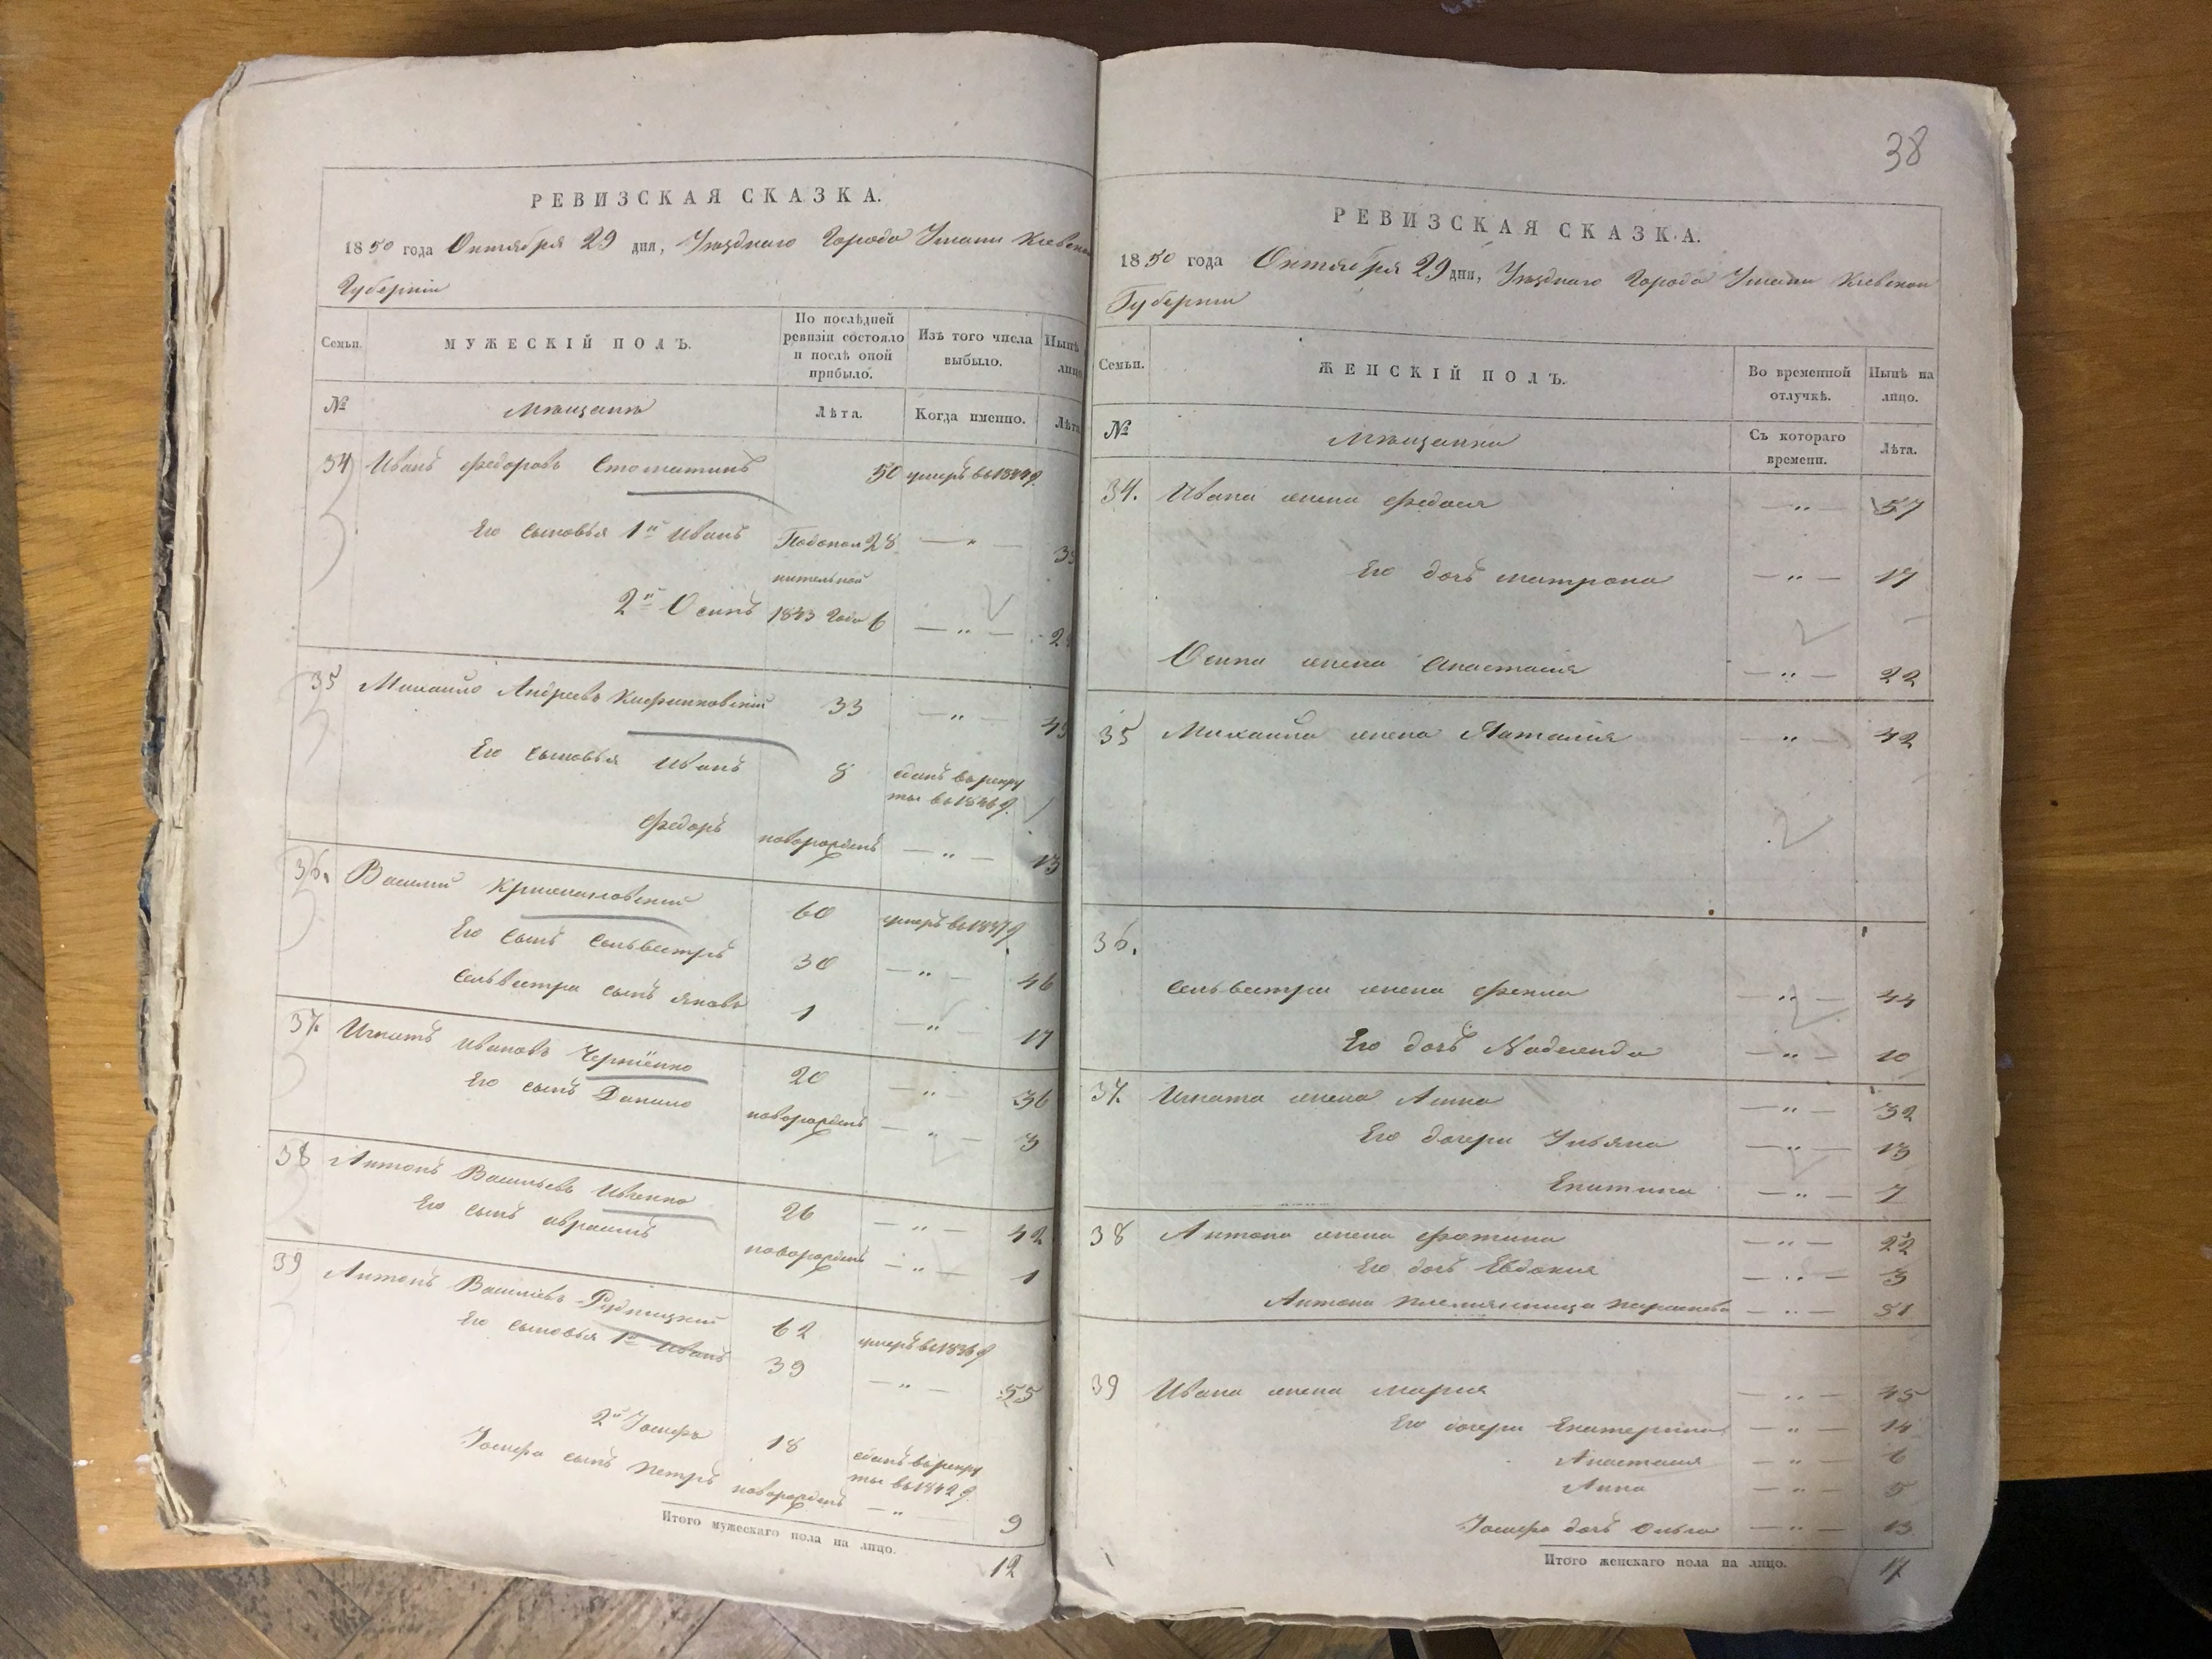 РЕВИЗСКАЯ СКАЗКА.
1850 года Октября 29 дня, Уѣзднаго Города Умани Кіевской
Губерніи
Семьи.
МУЖЕСКІЙ ПОЛЪ.
По послѣдней ревизіи состояло и послѣ оной прибыло.
Изъ того числа выбыло.
Нынѣ лицо
№
Мѣщанъ
Лѣта.
Когда именно.
Лѣта
34 Иванъ Федоровъ 50 умеръ въ
Его сыновья 1й Иванъ 28 — „ —
2й Осипъ 1843 Года 6 — „ —
35 Михайло Андреевъ 33 — „ —
Его сыновья Иванъ 8 сданъ въ рекру
ты въ 1846 г.
Федоръ новорожденъ — „ — 13
36. Василій 60 умеръ въ 1837 г.
Его сынъ Сельвестръ 30 — „ — 46
Сельвестра сынъ Яковъ 1 — „ — 17
37. Игнатъ Ивановъ 20 — „ — 36
Его сынъ Данило новорожденъ — „ — 3
38 Антонъ Васильевъ Ивченко 26 — „ — 42
Его сынъ Авраамъ новорожденъ — „ — 1
39 Антонъ Васильевъ Рудницкій 62 умеръ въ 1836 г.
Его сыновья 1й Иванъ 39 — „ — 55
2й Іосифъ 18 сданъ въ рекру
ты въ 1842 г.
Іосифа сынъ Петръ новорожденъ — „ — 9
Итого мужескаго пола на лицо. 12
38
РЕВИЗСКАЯ СКАЗКА.
1850 года Октября 29 дня, Уѣзднаго Города Умани Кіевской
Губерніи
Семьи.
ЖЕНСКІЙ ПОЛЪ.
Во временной отлучкѣ.
Нынѣ на лицо.
№
Мѣщанки
Съ котораго времени.
Лѣта.
34. Ивана жена Федосія — „ — 57
Его дочь Матрона — „ — 17
Осипа жена Анастасия — „ — 22
35 Михайла жена Наталия „ — 42
36.
Сельвестра жена Фекла — „ — 44
Его дочь Надежда — „ — 10
37. Игната жена Анна — „ — 32
Его дочери Ульяна — „ — 13
— „ — 7
38 Антона жена Фотина — „ — 22
Его дочь Евдокия — „ — 3
Антона племянница — „ —
39 Ивана жена Мария — „ — 45
Его дочери Екатерина — „ — 14
Анастасия — „ — 6
Анна — „ — 5
Іосифа дочь Ольга — „ — 13
Итого женскаго пола на лицо. 17